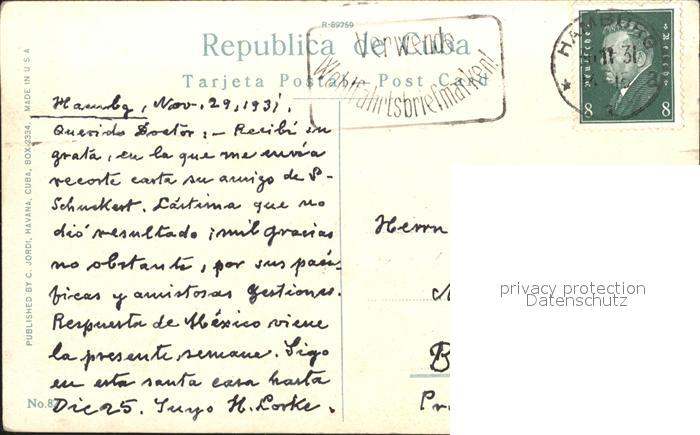 R-89759
Republica de Cuba
Tarjeta Postal Post Card
Verwende
Wohlfahrtsbriefmarken!
HAMBURG
11 31
8 8
MADE IN U S A
PUBLISHED BY C. JORDI, HAVANA, CUBA, BOX-2334.
Hambg, Nov. 29, 1931.
Querido Doctor: – Recibí su
grata, en la que me envía
recorte carta su amigo de S-
Schuckert. Lástima que no
dió resultado; mil gracias
no obstante, por sus pací-
ficas y amistosas gestiones.
Respuesta de México viene
la presente semana. Sigo
en esta santa casa hasta
Dic 25. Suyo H. Lorke.
No. 8
Herrn
B
Pr
privacy protection
Datenschutz